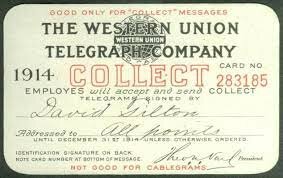 GOOD ONLY FOR "COLLECT" MESSAGES
THE WESTERN UNION
WESTERN UNION
TELEGRAPH COMPANY
1914 COLLECT CARD NO. 283185
EMPLOYES will accept and send COLLECT
TELEGRAMS SIGNED BY
David Tilton
Addressed to All points
UNTIL DECEMBER 31ST 1914 UNLESS OTHERWISE ORDERED.
IDENTIFICATION SIGNATURE ON BACK.
NOTE CARD NUMBER AT BOTTOM OF MESSAGE. President
NOT GOOD FOR CABLEGRAMS